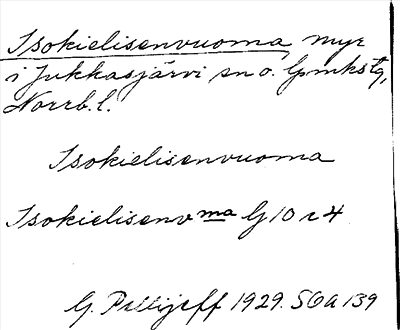 Isokielisenvuoma, myr
i Jukkasjärvi sn o. lpmkstg,
Norrb. l.
Isokielisenvuoma
Isokielisenvma G10 r4
G. Pellijeff 1929. SOA 139